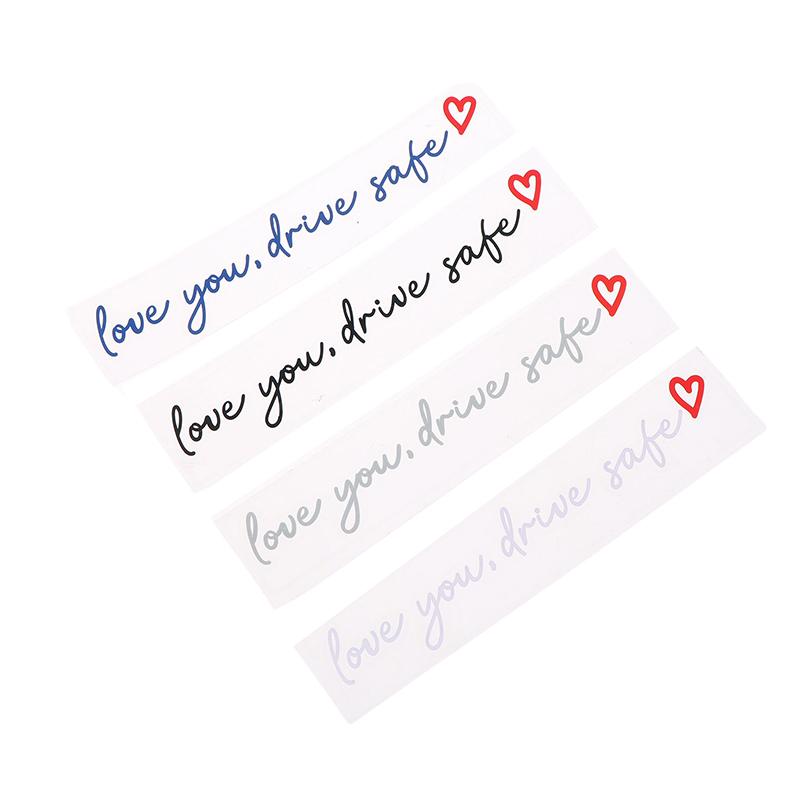 love you, drive safe
love you, drive safe
love you, drive safe
love you, drive safe